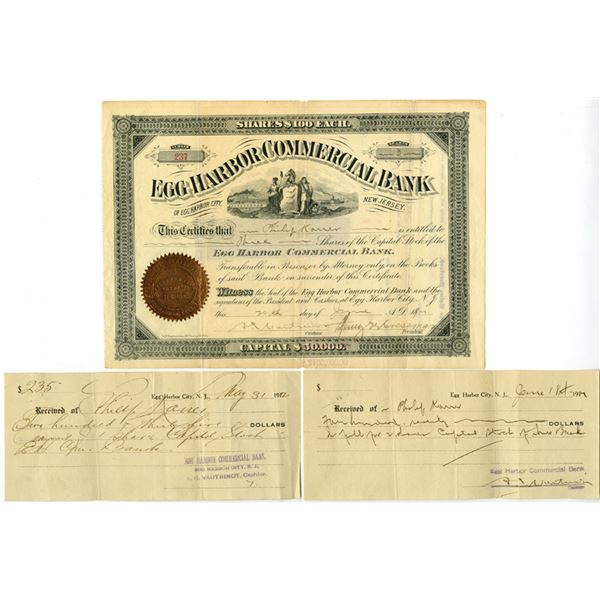 SHARES $100 EACH.
NUMBER
237
SHARES
3
EGG HARBOR COMMERCIAL BANK
OF EGG HARBOR CITY, NEW JERSEY.
This Certifies that Philip Karrer is entitled to
Three Shares of the Capital Stock of the
EGG HARBOR COMMERCIAL BANK.
Transferable in Person, or by Attorney only, on the Books
of said Bank on surrender of this Certificate.
Witness the Seal of the Egg Harbor Commercial Bank and the
signatures of the President and Cashier, at Egg Harbor City, N.J.
this day of June A.D.
Cashier
President
CAPITAL $50.000.
$235 Egg Harbor City, N. J., May 31 1912
Received of Philip Karrer
Two hundred & thirty five DOLLARS
payment 1 Share Capital Stock
EGG HARBOR COMMERCIAL BANK,
EGG HARBOR CITY, N. J.
Cashier.
$ Egg Harbor City, N. J., June 1st
Received of Philip Karrer
DOLLARS
Capital Stock of Bank
Egg Harbor Commercial Bank
Cashier